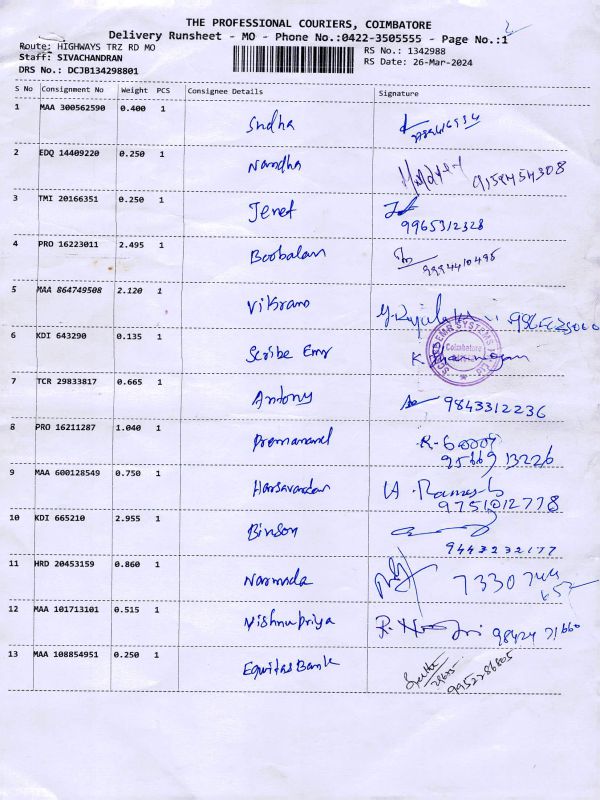 THE PROFESSIONAL COURIERS, COIMBATORE
Delivery Runsheet - MO - Phone No.:0422-3505555 - Page No.:1
Route: HIGHWAYS TRZ RD MO
RS No.: 1342988
Staff: SIVACHANDRAN
RS Date: 26-Mar-2024
DRS No.: DCJB134298801
S No Consignment No Weight PCS Consignee Details Signature
1 MAA 300562590 0.400 1 Sudha
2 EDQ 14409220 0.250 1 Nandha 9159454308
3 TMI 20166351 0.250 1 Jenet
9965312328
4 PRO 16223011 2.495 1 Boobalan
9994410495
5 MAA 864749508 2.120 1 Vikram
6 KDI 643290 0.135 1 Scribe Emr
Coimbatore
7 TCR 29833817 0.665 1 Antony 9843312236
8 PRO 16211287 1.040 1 Premanand
95669 13226
9 MAA 600128549 0.750 1 Harsavardan
9751012778
10 KDI 665210 2.955 1 Binson
9443232177
11 HRD 20453159 0.860 1 Narmada 7330744
652
12 MAA 101713101 0.515 1 Vishnupriya 98424 71660
13 MAA 108854951 0.250 1 Equitas Bank
9952286805